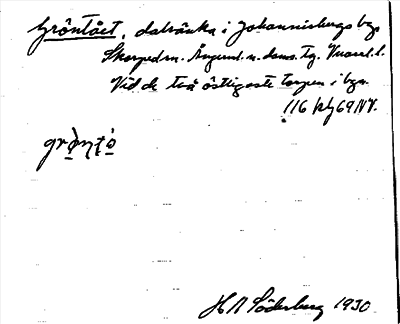 Gröntået, dalsänka i Johannisbergs by,
Skorpeds sn. Ångerml. n. doms. tg. Vnorrl. l.
Vid de två östligaste torpen i byn.
116 kbf 69 NV.
grǫ̀nt̯ó̯
H A Söderberg 1930